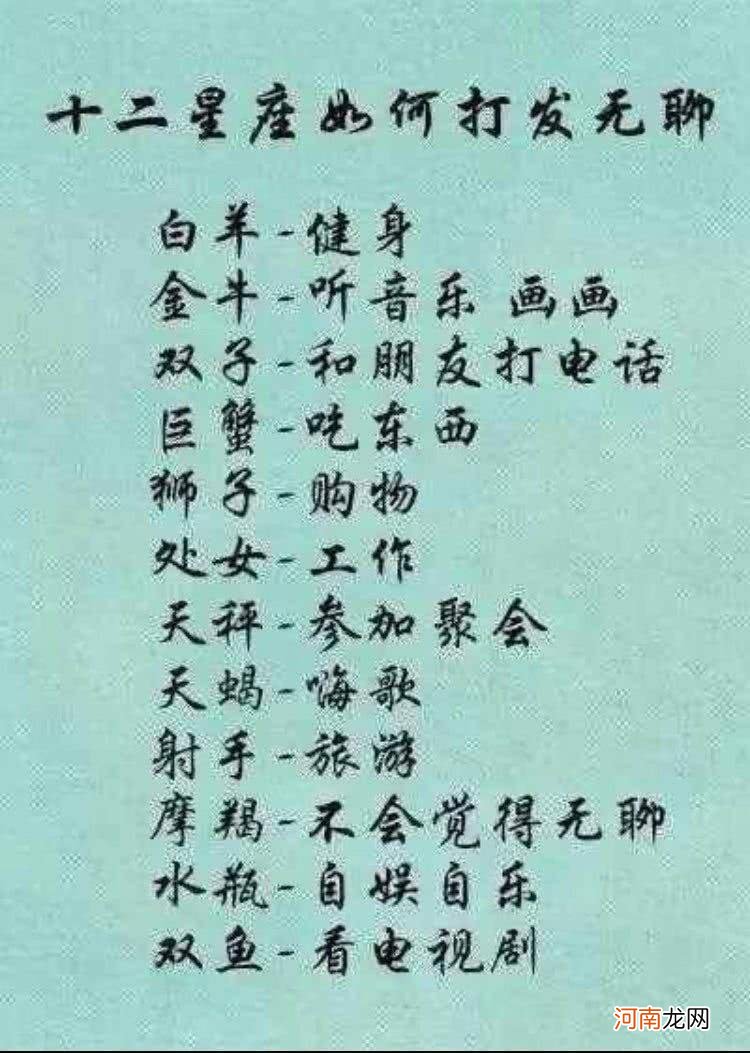 十二星座如何打发无聊
白羊-健身
金牛-听音乐 画画
双子-和朋友打电话
巨蟹-吃东西
狮子-购物
处女-工作
天秤-参加聚会
天蝎-嗨歌
射手-旅游
摩羯-不会觉得无聊
水瓶-自娱自乐
双鱼-看电视剧
河南龙网